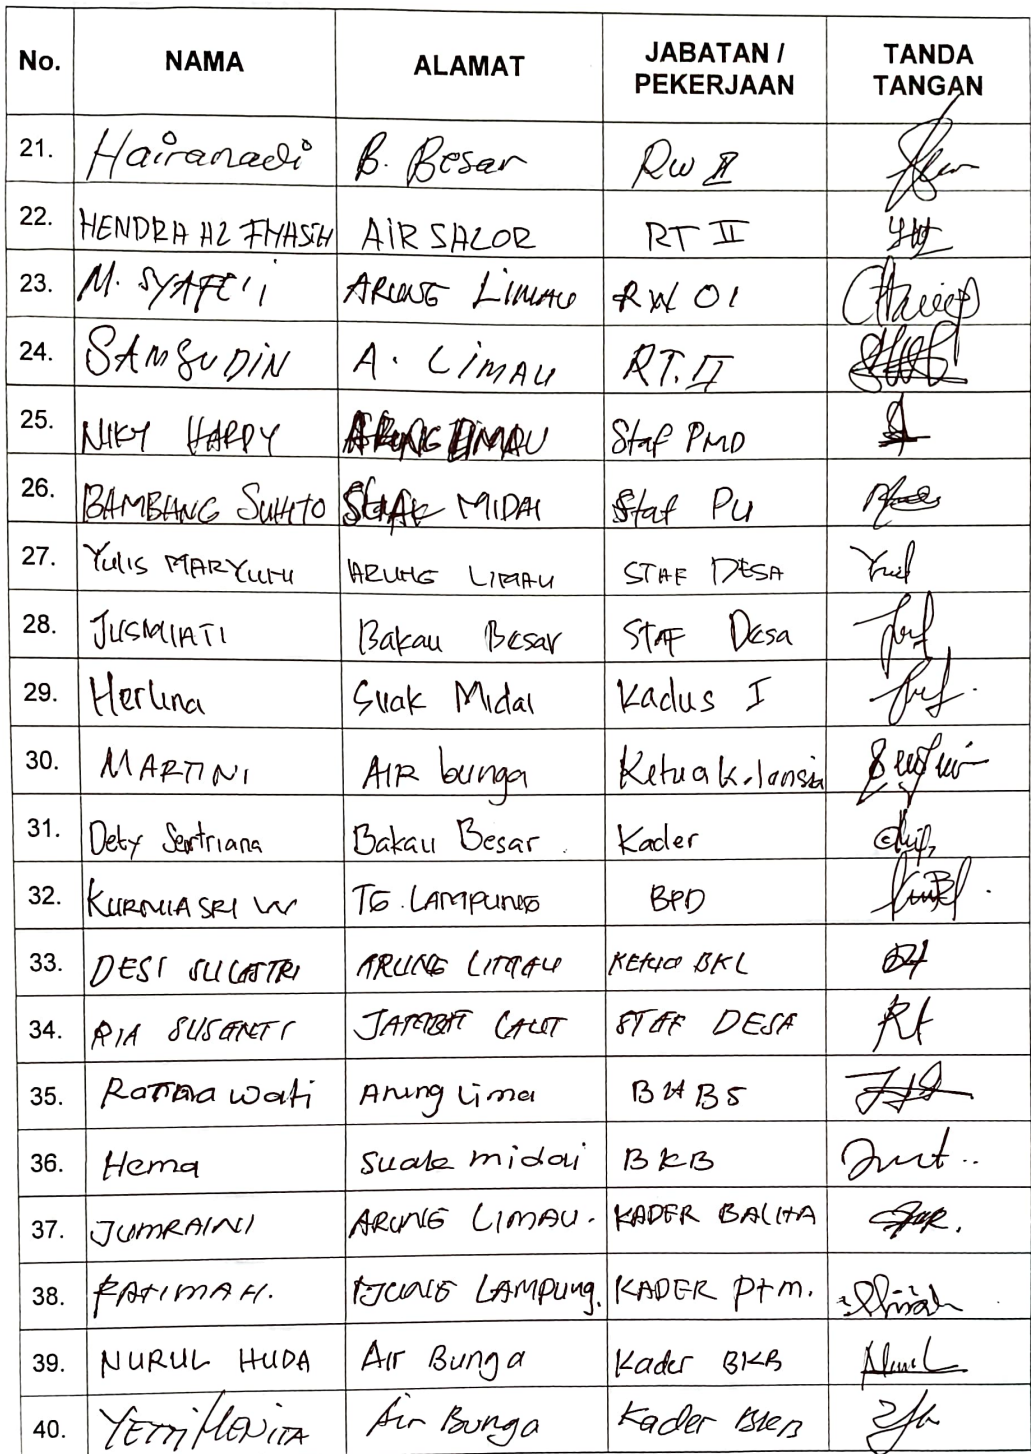 No. NAMA ALAMAT JABATAN / PEKERJAAN TANDA TANGAN
21. Hairanadi B. Besar RW II
22. HENDRA AL AIR SALOR RT II
23. M. SYAFE'i ARUNG LIMAU RW 01
24. SAMSUDIN A. LIMAU RT. II
25. NIKY HAPPY ARUNG LIMAU Staf PMD
26. BAMBANG SUHITO SUAK MIDAI Staf PU
27. Yulis MARYUNI ARUNG LIMAU STAF DESA
28. JUSMIATI Bakau Besar STAF Desa
29. Herlina Suak Midai Kadus I
30. MARTINI AIR bunga Ketua k. lansia
31. Dety Sentriana Bakau Besar Kader
32. KURNIA SRI W TG. LAMPUNG BPD
33. DESI SULASTRI ARUNG LIMAU KETUA BKL
34. RIA SUSANTI LAUT STAF DESA
35. Ratna wati Arung Lima
36. Herna Suak midai BKB
37. JUMRAINI ARUNG LIMAU. KADER BALITA
38. FATIMAH. LAMPUNG. KADER PTM.
39. NURUL HUDA Air Bunga Kader BKB
40. YETTI HENITA Air Bunga Kader BKB